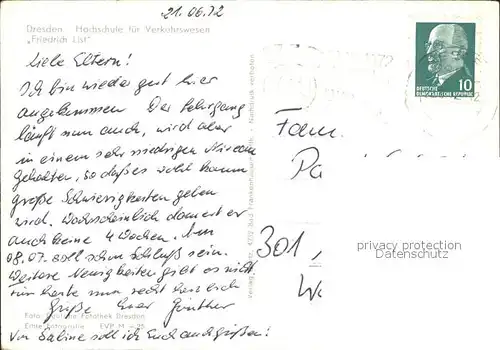 21.06.72
Dresden Hochschule für Verkehrswesen
„Friedrich List"
Liebe Eltern!
Ich bin wieder gut hier
angekommen. Der Lehrgang
läuft nun auch, wird aber
in einem sehr niedrigen Niveau
gehalten, so daß es wohl kaum
große Schwierigkeiten geben
wird. Wahrscheinlich dauert er
auch keine 4 Wochen. Am
08.07. soll schon Schluß sein.
Weitere Neuigkeiten gibt es nicht
für heute nun recht herzlich
Grüße Euer Günther
Von Sabine soll ich Euch auch grüßen!
Foto: Deutsche Fotothek Dresden
Echte Fotografie EVP M
Nachdruck verboten
4732 Bad Frankenhausen
Verlag
DEUTSCHE
DEMOKRATISCHE REPUBLIK
10
Fam.
Pa
301
privacy protection
Datenschutz